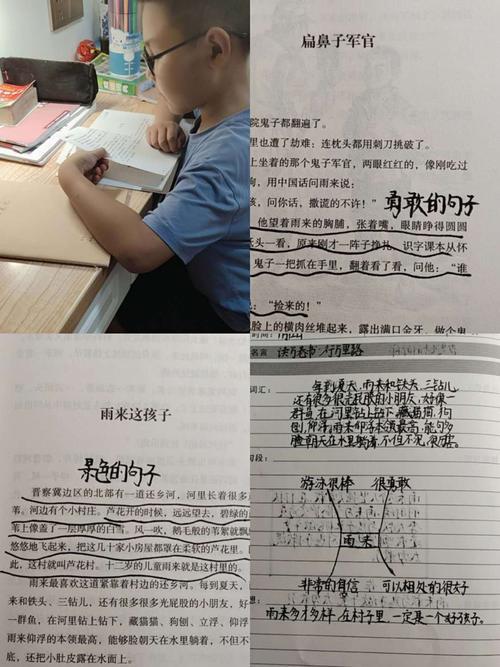 扁鼻子军官
院鬼子都翻遍了。
里也遭了劫难：连枕头都用刺刀挑破了。
上坐着的那个鬼子军官，两眼红红的，像刚吃过
狗，用中国话问雨来说：
孩，问你话，撒谎的不许！”
勇敢的句子
他望着雨来的胸脯，张着嘴，眼睛睁得圆圆
头一看，原来刚才一阵子挣扎，识字课本从怀
鬼子一把抓在手里，翻着看了看，问他：“谁
：“捡来的！”
脸上的横肉丝堆起来，露出满口金牙，做个鬼
雨来这孩子
景色的句子
晋察冀边区的北部有一道还乡河，河里长着很多
苇。河边有个小村庄。芦花开的时候，远远望去，碧绿的
苇上像盖了一层厚厚的白雪。风一吹，鹅毛般的苇絮就飘
悠悠地飞起来，把这几十家小房屋都罩在柔软的芦花里。
此，这村就叫芦花村。十二岁的儿童雨来就是这村里的。
雨来最喜欢这道紧靠着村边的还乡河。每到夏天，
来和铁头、三钻儿，还有很多很多光屁股的小朋友，好
一群鱼，在河里钻上钻下，藏猫猫，狗刨，立浮，仰浮
雨来仰浮的本领最高，能够脸朝天在水里躺着，不但不
底，还把小肚皮露在水面上。
名言
读万卷书，行万里路
词汇：
每到夏天，雨来和铁头、三钻儿
还有很多很多光屁股的小朋友，好像一
群鱼，在河里钻上钻下，藏猫猫，狗
刨，仰浮，雨来仰浮本领最高，能够
脸朝天在水里躺着，不但不沉
段：
游泳很棒
很勇敢
雨来
非常的自信
可以相处的很好
想：
雨来多才多样，在村子里一定是一个好孩子。